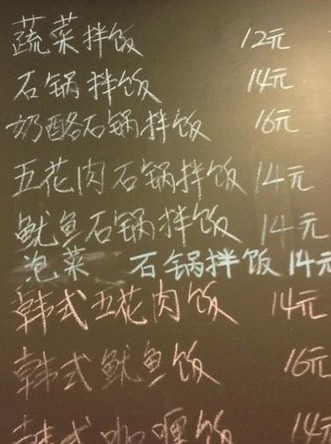 蔬菜拌饭 12元
石锅拌饭 14元
奶酪石锅拌饭 16元
五花肉石锅拌饭 14元
鱿鱼石锅拌饭 14元
泡菜 石锅拌饭 14元
韩式五花肉饭 14元
韩式鱿鱼饭 16元
韩式咖喱饭 14元